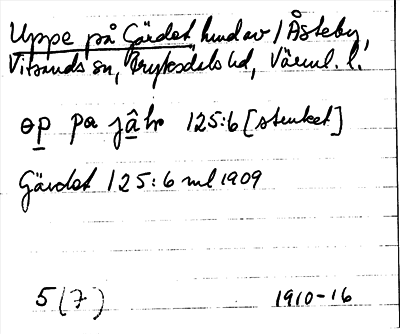 Uppe på Gärdet hmdav 1 Åsteby,
Vitsands sn, Fryksdals hd, Värml. l.
ɵp pa jâʈɽ 125:6 [struket]
Gärdet 125:6 ml 1909
5 (7) 1910-16